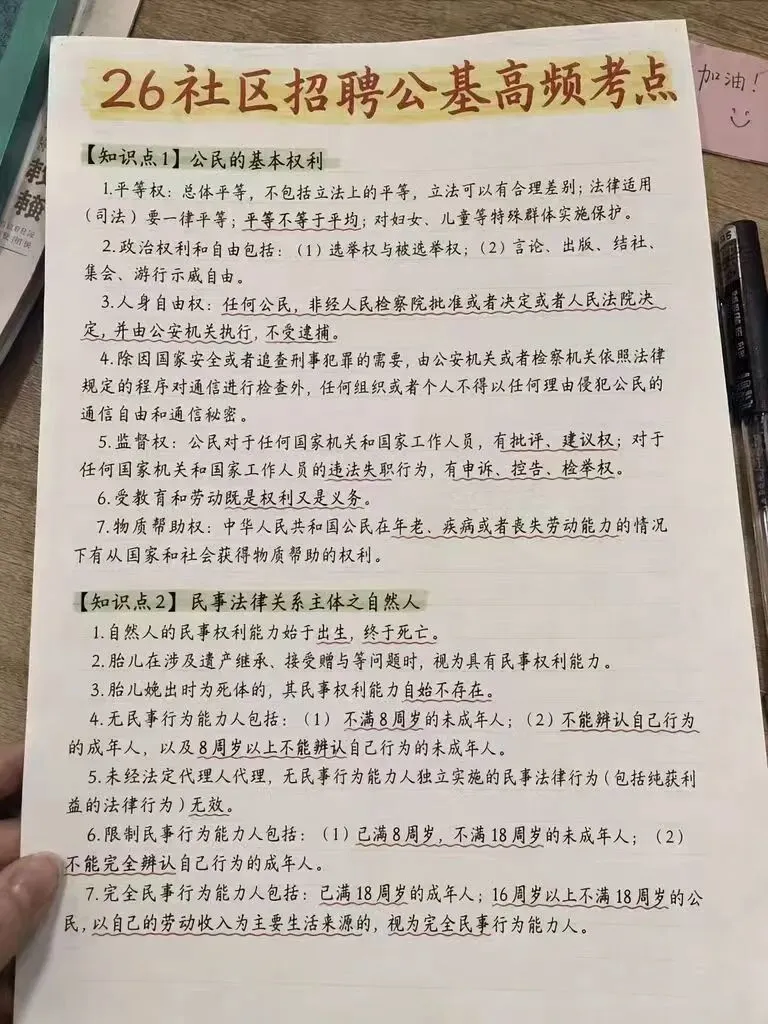 26社区招聘公基高频考点
加油！
【知识点1】公民的基本权利
1.平等权：总体平等，不包括立法上的平等，立法可以有合理差别；法律适用
（司法）要一律平等；平等不等于平均；对妇女、儿童等特殊群体实施保护。
2.政治权利和自由包括：（1）选举权与被选举权；（2）言论、出版、结社、
集会、游行示威自由。
3.人身自由权：任何公民，非经人民检察院批准或者决定或者人民法院决
定，并由公安机关执行，不受逮捕。
4.除因国家安全或者追查刑事犯罪的需要，由公安机关或者检察机关依照法律
规定的程序对通信进行检查外，任何组织或者个人不得以任何理由侵犯公民的
通信自由和通信秘密。
5.监督权：公民对于任何国家机关和国家工作人员，有批评、建议权；对于
任何国家机关和国家工作人员的违法失职行为，有申诉、控告、检举权。
6.受教育和劳动既是权利又是义务。
7.物质帮助权：中华人民共和国公民在年老、疾病或者丧失劳动能力的情况
下有从国家和社会获得物质帮助的权利。
【知识点2】民事法律关系主体之自然人
1.自然人的民事权利能力始于出生，终于死亡。
2.胎儿在涉及遗产继承、接受赠与等问题时，视为具有民事权利能力。
3.胎儿娩出时为死体的，其民事权利能力自始不存在。
4.无民事行为能力人包括：（1）不满8周岁的未成年人；（2）不能辨认自己行为
的成年人，以及8周岁以上不能辨认自己行为的未成年人。
5.未经法定代理人代理，无民事行为能力人独立实施的民事法律行为（包括纯获利
益的法律行为）无效。
6.限制民事行为能力人包括：（1）已满8周岁，不满18周岁的未成年人；（2）
不能完全辨认自己行为的成年人。
7.完全民事行为能力人包括：已满18周岁的成年人；16周岁以上不满18周岁的公
民，以自己的劳动收入为主要生活来源的，视为完全民事行为能力人。